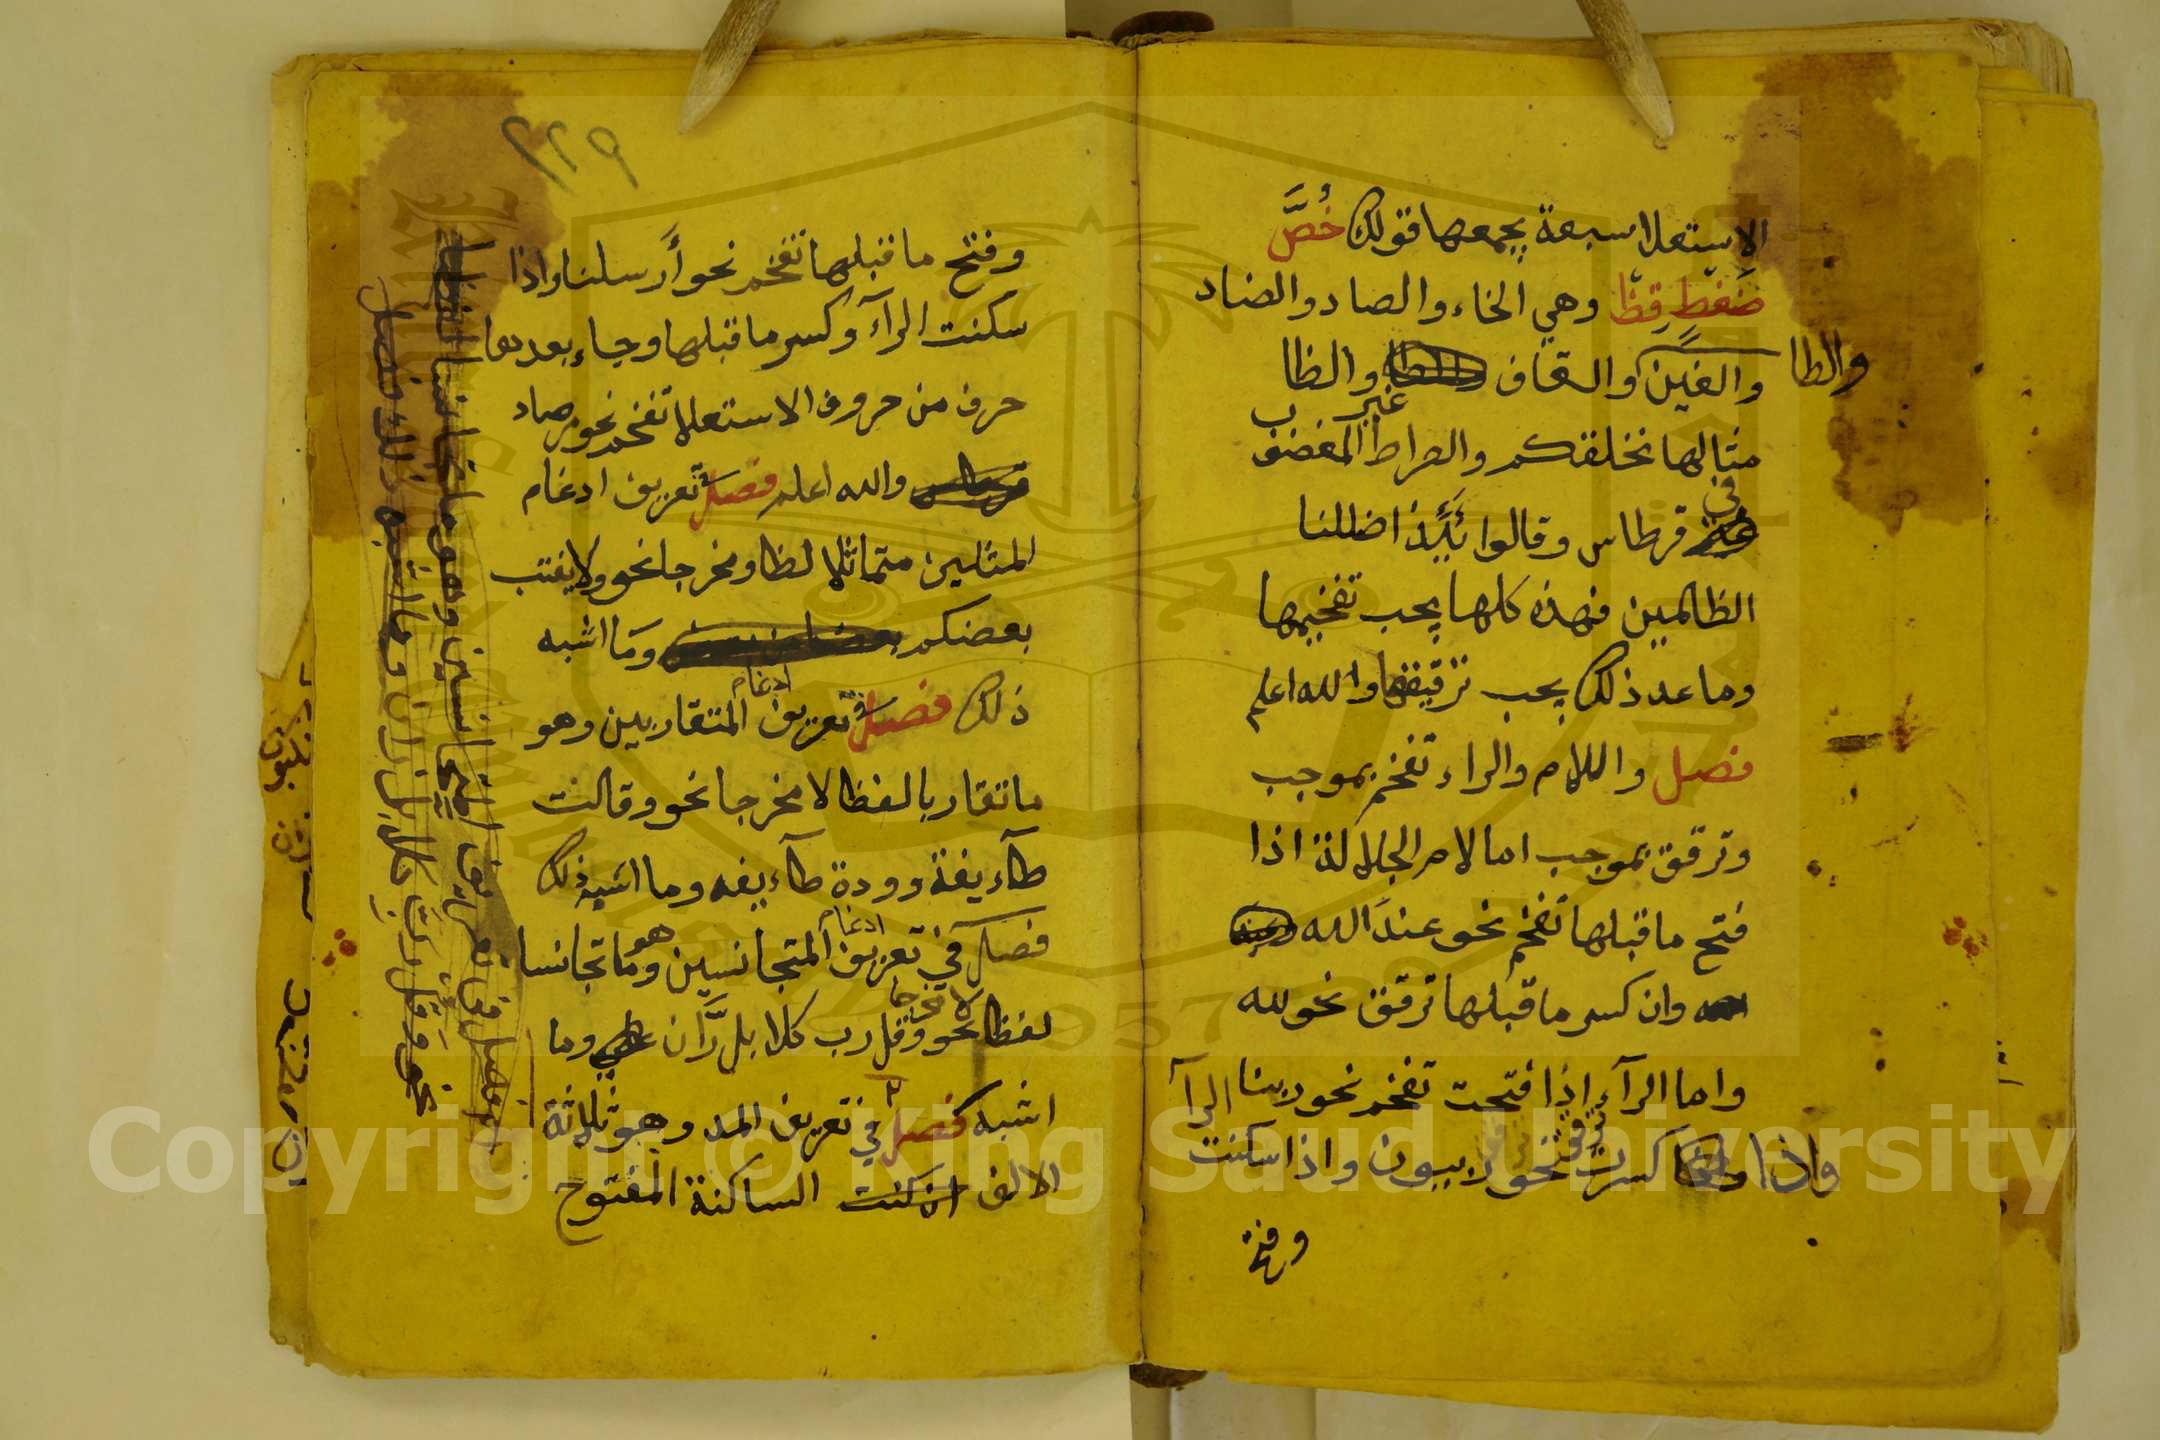 الاستعلا سبعة يجمعها قولك خُصَّ
ضَغْطٍ قِظْ وهي الخاء والصاد والضاد
والغين والقاف والظا
والطا
غير
مثالها نخلقكم والصراط المغضوب
في
قرطاس وقالوا أئذا اضللنا
الظالمين فهذه كلها يجب تفخيمها
وما عد ذلك يجب ترقيقها والله اعلم
فصل واللام والراء تفخم بموجب
وترقق بموجب اما لام الجلالة اذا
فتح ما قبلها تفخم نحو عندَ الله
وان كسر ما قبلها ترقق نحو لله
واما الرآء اذا فتحت تفخم نحو ربنا
واذا كسرت ترقق نحو ربيون واذا سكنت الرآ
وفتح
٢٢٩
وفتح ما قبلها تفخم نحو أرسلنا واذا
سكنت الرآء وكسر ما قبلها وجاء بعدها
حرف من حروف الاستعلا تفخم نحو مرصاد
والله اعلم فصل تعريف ادغام
المثلين متماثلا لفظا ومخرجا نحو ولا يغتب
بعضكم وما اشبه
ذلك فصل تعريف ادغام المتقاربين وهو
ما تقاربا لفظا لا مخرجا نحو وقالت
طآءيفة وودة طآءيفه وما اشبه ذلك
فصل في تعريف ادغام المتجانسين وهو ما تجانسا
لفظا لا مخرجا نحو وقل رب كلا بل رَّان وما
اشبه فصل في تعريف المد وهو ثلاثة
الالف الساكنة المفتوح
Copyright © King Saud University